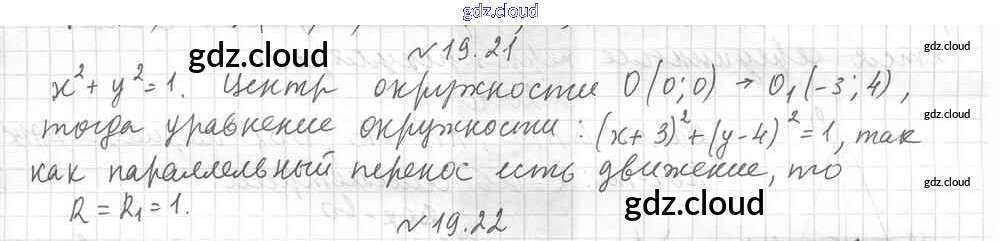 gdz.cloud
№ 19.21
gdz.cloud
x² + y² = 1. Центр окружности O (0; 0) → O₁ (-3; 4),
gdz.cloud
тогда уравнение окружности: (x + 3)² + (y - 4)² = 1, так
как параллельный перенос есть движение, то
gdz.cloud
R = R₁ = 1.
gdz.cloud
№ 19.22